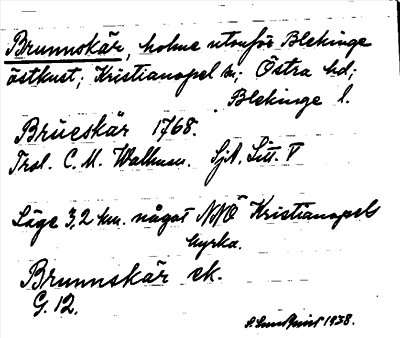 Brunnskär, holme utanför Blekinge
östkust; Kristianopel sn; Östra hd;
Blekinge l.
Brueskär 1768.
Trol. C. M. Wallman. Sjk. Litt. V
Läge 3,2 km. något NNÖ Kristianopels
kyrka.
Brunnskär ek.
G. 12.
1938.